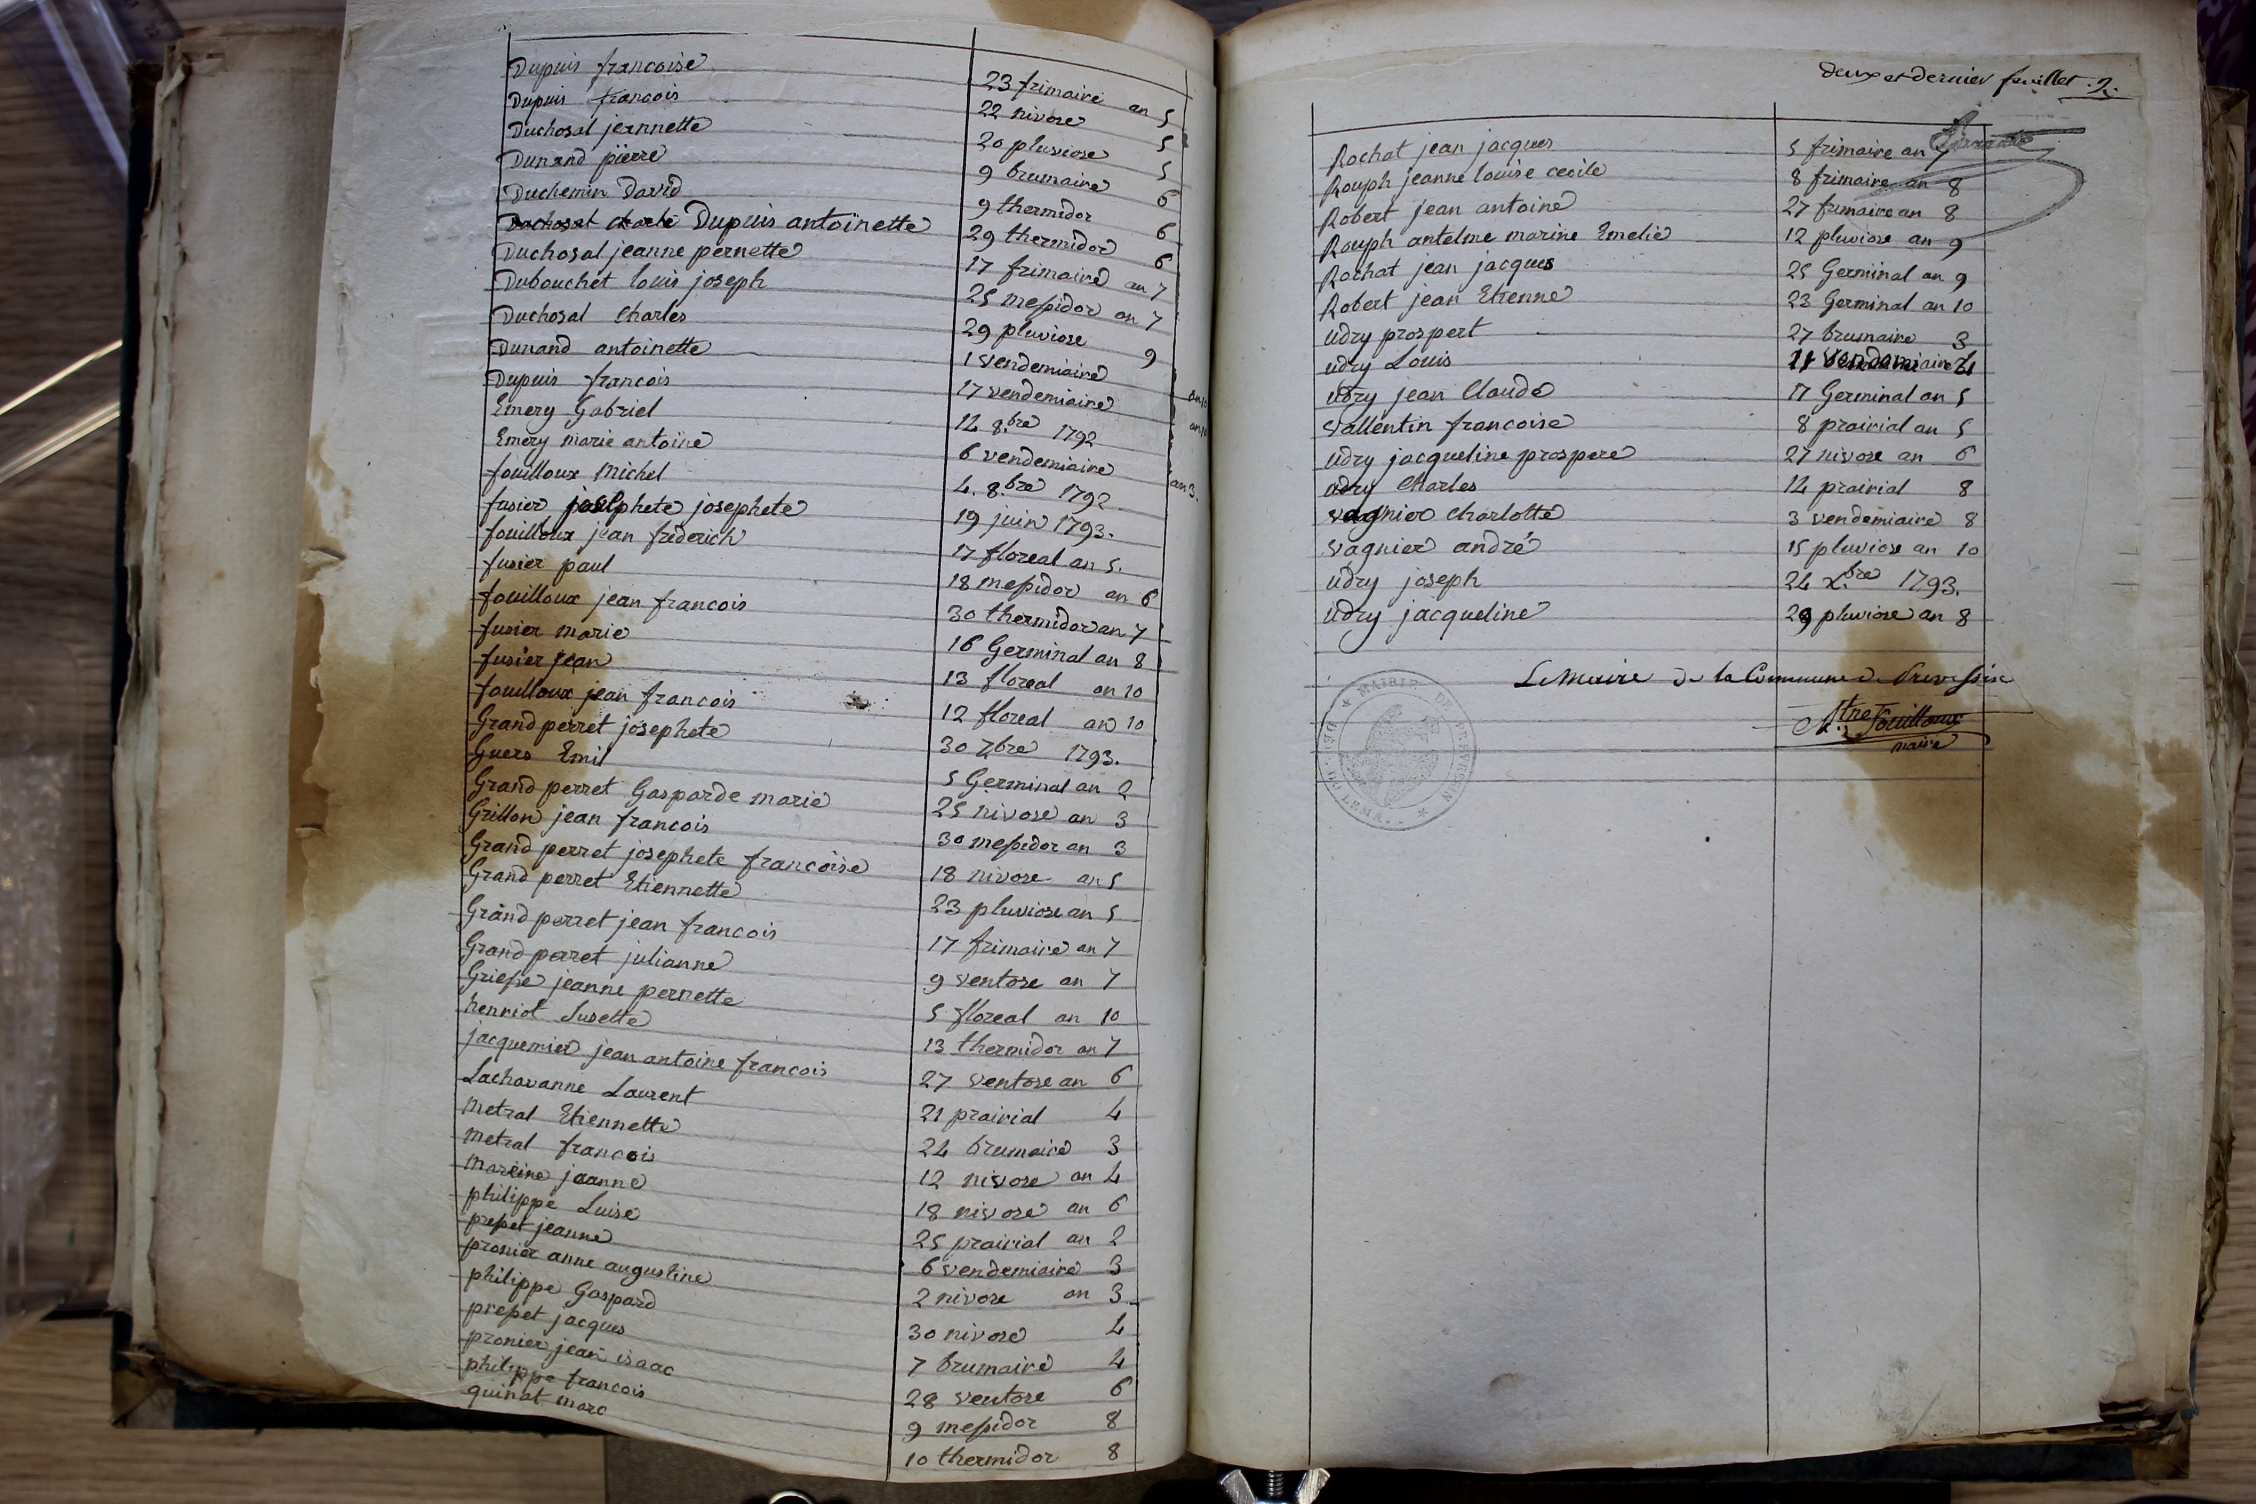 Dupuis francoise 23 frimaire an 5
Dupuis francois 22 nivose 5
Duchosal jeannette 20 pluviose 5
Dunand pierre 9 brumaire 6
Duchemin David 9 thermidor 6
Duchosal charle Dupuis antoinette 29 thermidor 6
Duchosal jeanne pernette 17 frimaire an 7
Dubouchet louis joseph 25 messidor an 7
Duchosal Charles 29 pluviose 9
Dunand antoinette 1 vendemiaire an 10
Dupuis francois 17 vendemiaire an 10
Emery Gabriel 14 8.bre 1792
Emery marie antoine 6 vendemiaire an 3.
fouilloux Michel 4. 8.bre 1792
fusier josephete 19 juin 1793.
fouilloux jean friderich 17 floreal an 5.
fusier paul 18 messidor an 6
fouilloux jean francois 30 thermidor an 7
fusier marie 16 Germinal an 8
fusier jean 13 floreal an 10
fouilloux jean francois 12 floreal an 10
Grand perret josephete 30 7bre 1793.
Guers Emil 5 Germinal an 2
Grand perret Gasparde marie 25 nivose an 3
Grillon jean francois 30 messidor an 3
Grand perret josephete francoise 18 nivose an 5
Grand perret Etiennette 23 pluviose an 5
Grand perret jean francois 17 frimaire an 7
Grand perret julianne 9 ventose an 7
Griesse jeanne pernette 5 floreal an 10
henriot Susette 13 thermidor an 7
jacquemier jean antoine francois 27 ventose an 6
Lachavanne Laurent 21 prairial 4
Metral Etiennette 24 brumaire 3
Metral francois 12 nivose an 4
Mareine jeanne 18 nivose an 6
philippe Luise 25 prairial an 2
presset jeanne 6 vendemiaire 3
pronier anne augustine 2 nivose an 3
philippe Gaspard 30 nivose 4
presset jacques 7 brumaire 4
pronier jean isaac 28 ventose 6
philippe francois 9 messidor 8
quinat marc 10 thermidor 8
deux et dernier feuillet . 2.
Rochat jean jacques 5 frimaire an 7
Rouph jeanne louise cecile 8 frimaire an 8
Robert jean antoine 27 frimaire an 8
Rouph antelme marine Emelie 12 pluviose an 9
Rochat jean jacques 25 Germinal an 9
Robert jean Etienne 23 Germinal an 10
udry prospert 27 brumaire 3
udry Louis 11 vendemiaire 4
udry jean Claude 17 Germinal an 5
vallentin francoise 8 prairial an 5
udry jacqueline prospere 27 nivose an 6
udry Charles 14 prairial 8
vagnier charlotte 3 vendemiaire 8
vagnier andré 15 pluviose an 10
udry joseph 24 x.bre 1793.
udry jacqueline 29 pluviose an 8
Le Maire de la Commune de Prevessin
Fouilloux
maire
MAIRIE DE PREVESSIN